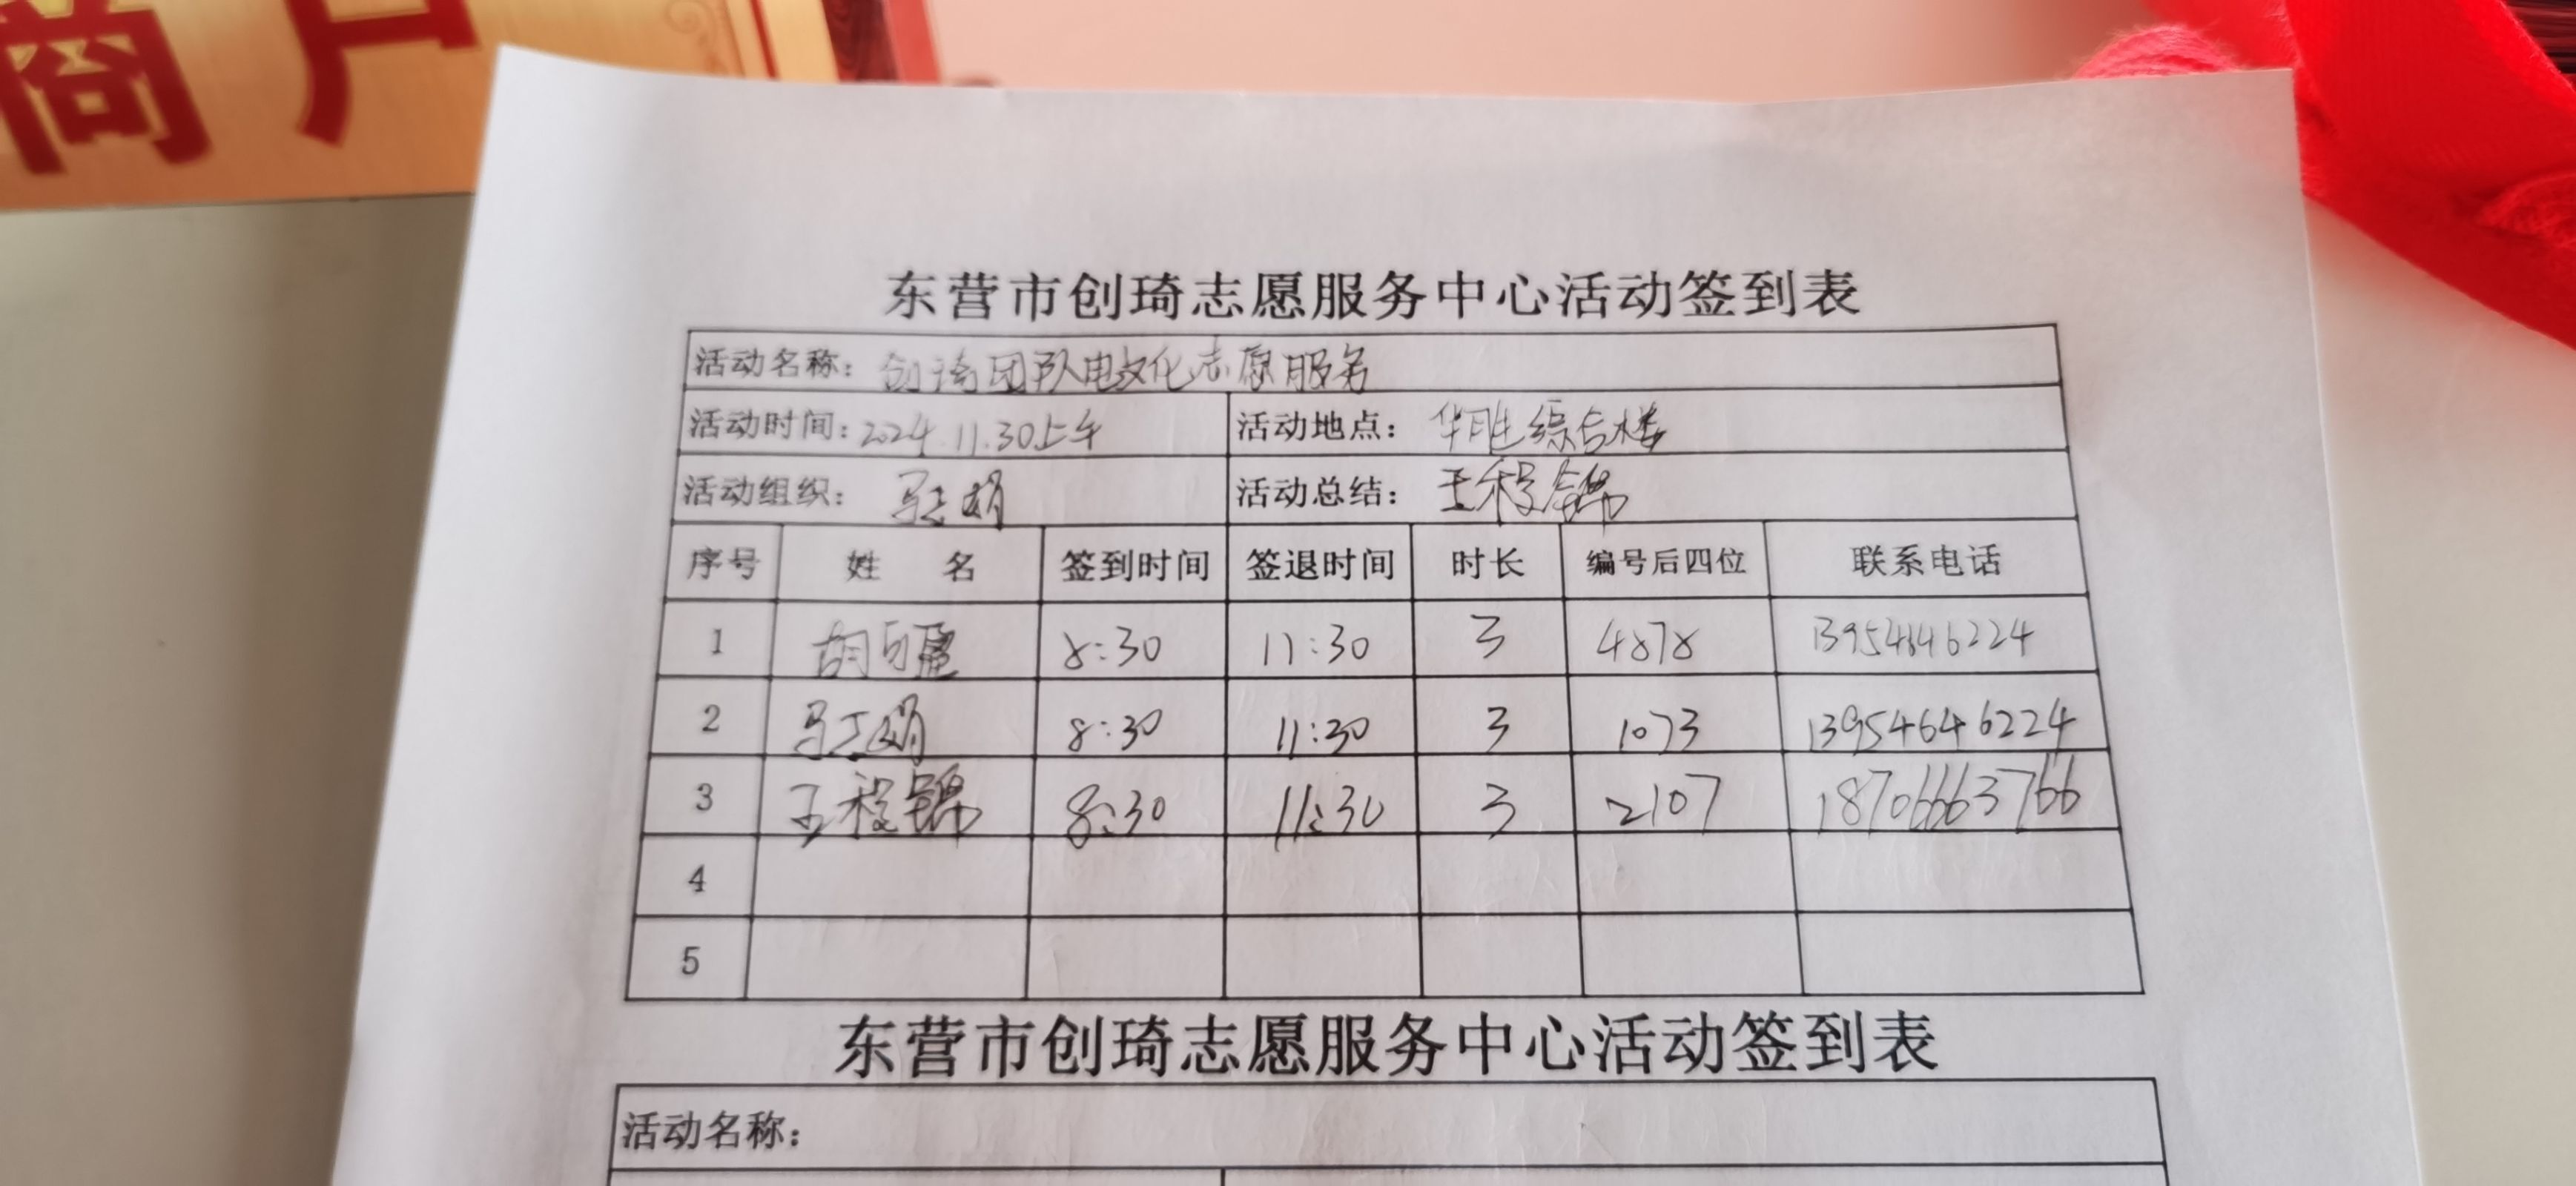 商户
东营市创琦志愿服务中心活动签到表
活动名称：创琦团队电文化志愿服务
活动时间：2024.11.30上午 活动地点：华胜综合楼
活动组织： 活动总结：王程锦
序号 姓 名 签到时间 签退时间 时长 编号后四位 联系电话
1 8:30 11:30 3 4878 13954646224
2 8:30 11:30 3 1073 13954646224
3 王程锦 8:30 11:30 3 2107 18706663766
4
5
东营市创琦志愿服务中心活动签到表
活动名称：